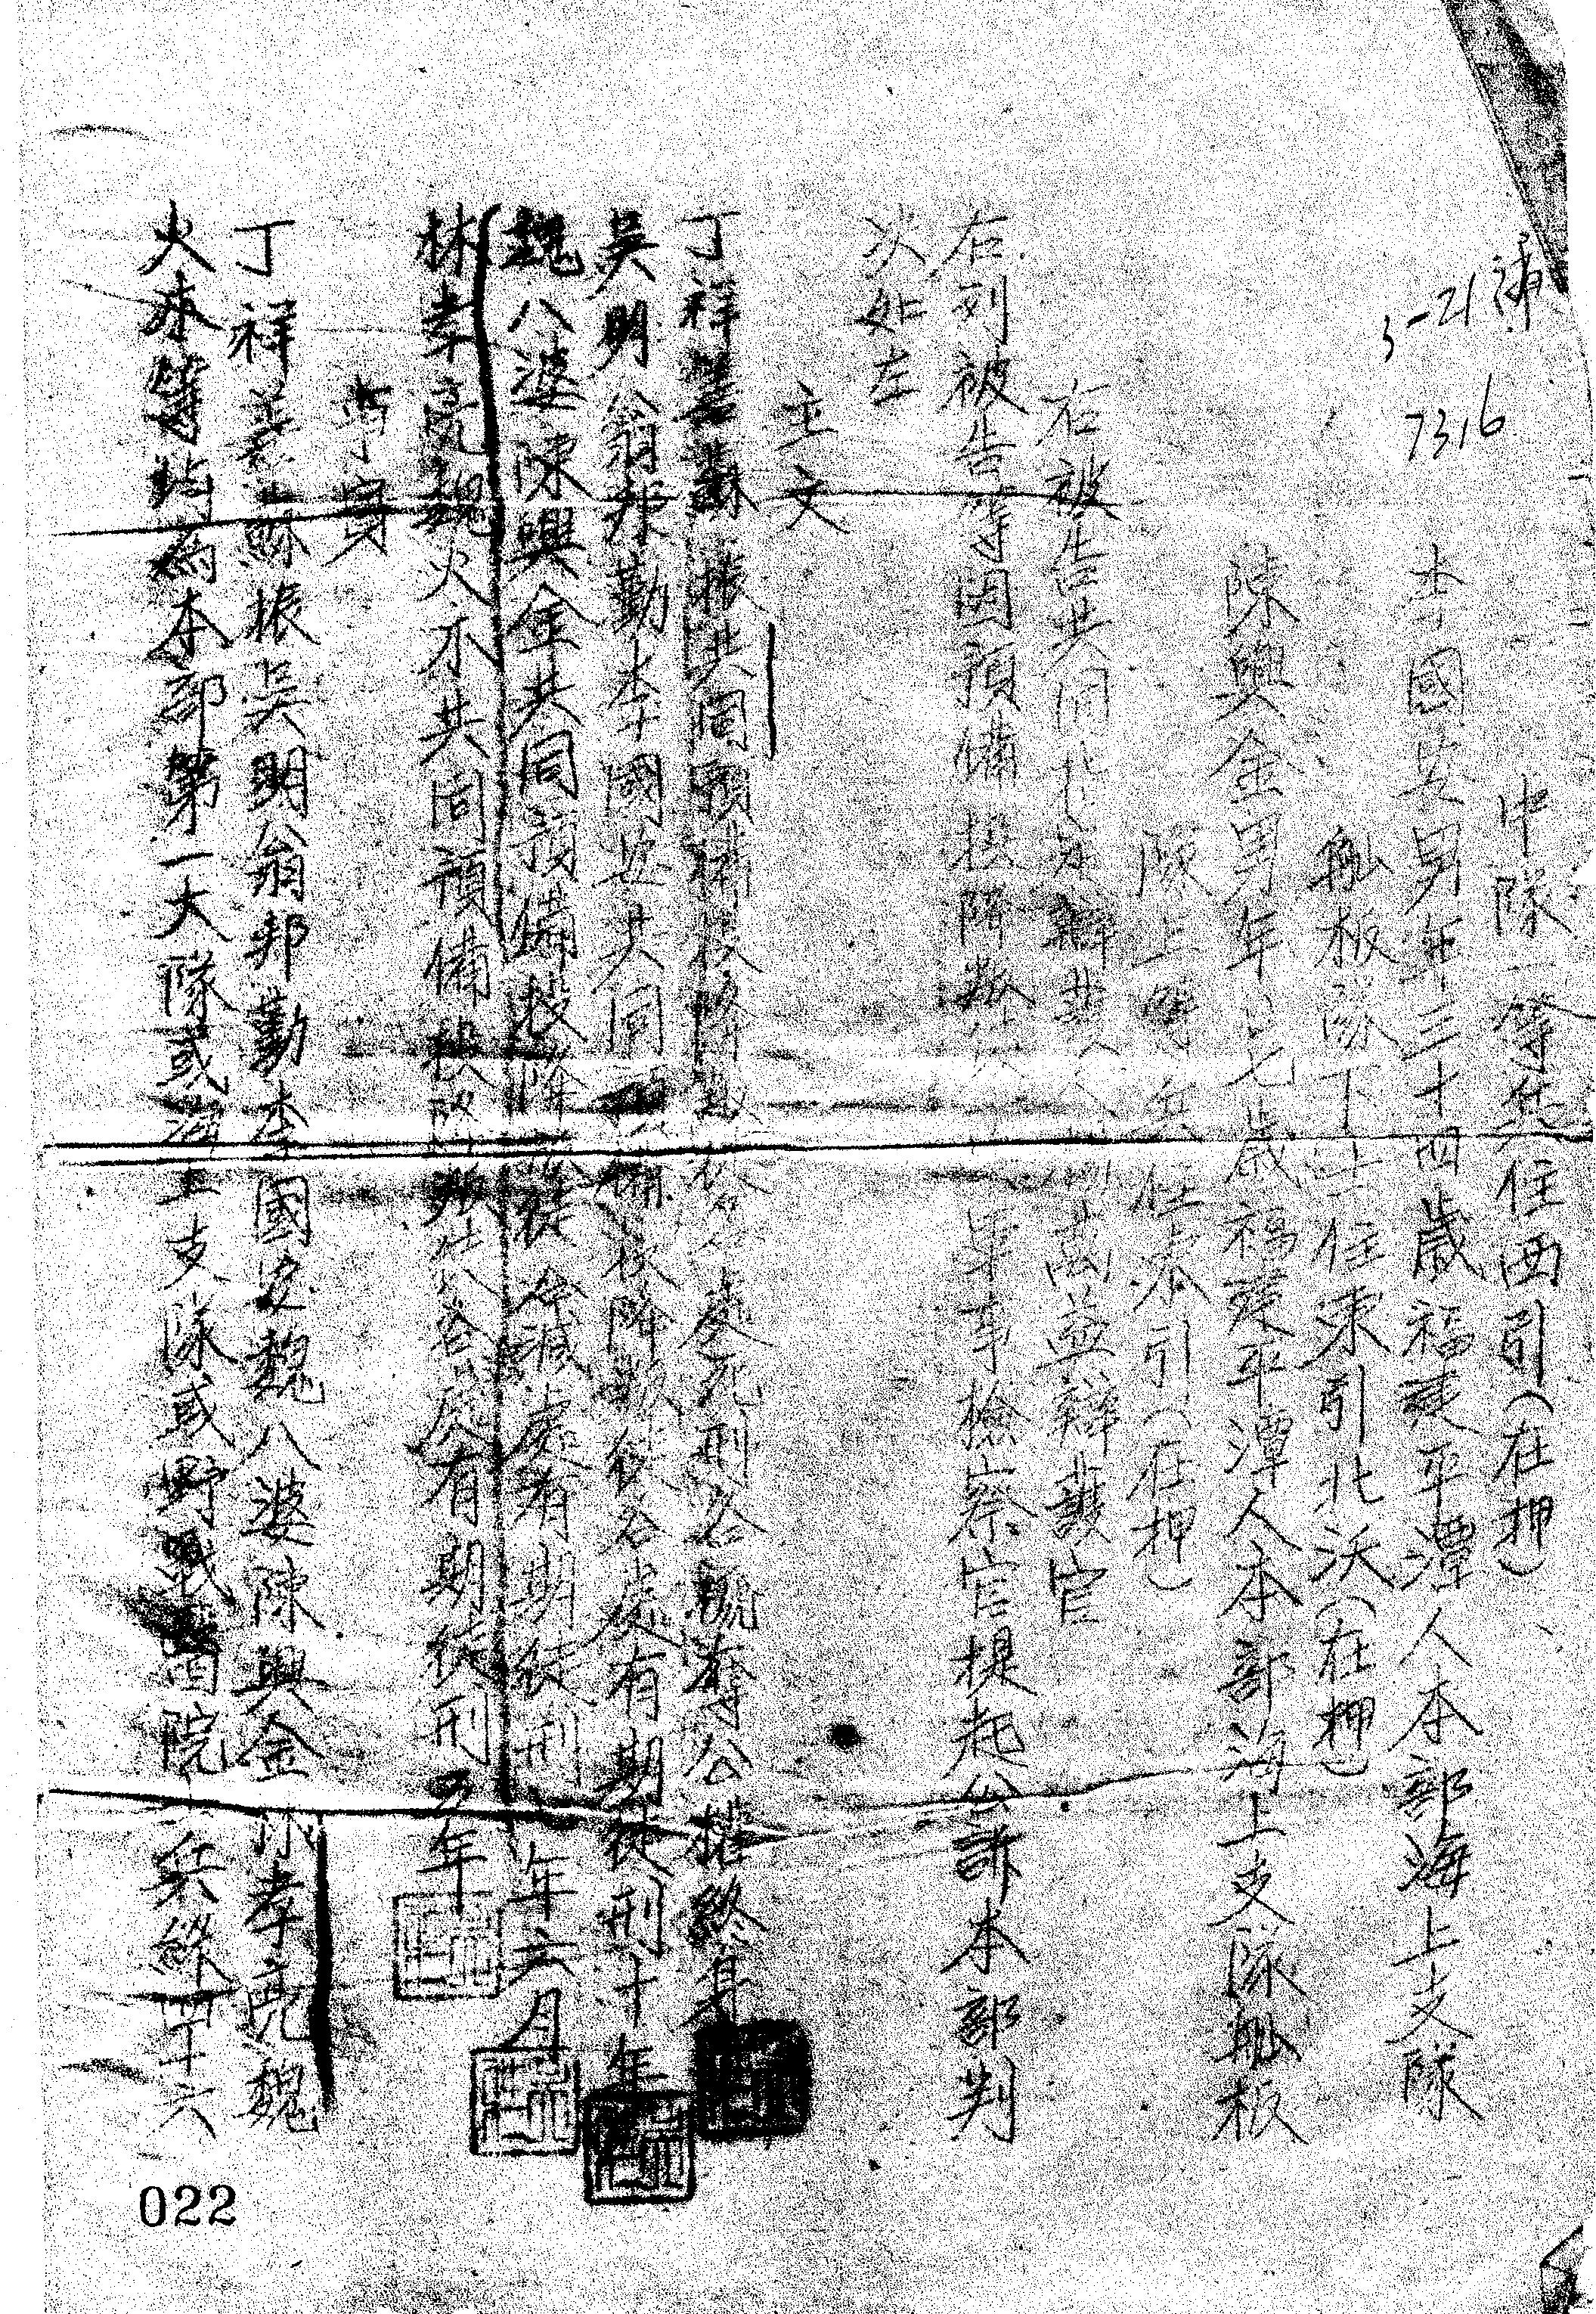 補
5-21
7316
中隊一等兵住西引（在押）
李國安男年三十四歲福建平潭人本部海上支隊
舢板隊下士住東引北沃（在押）
陳興金男年 七歲福建平潭人本部海上支隊舢板
隊上 兵住東引（在押）
右被告共同 辯護人 萬益辯護官
右列被告等因預備投降叛徒 軍事檢察官提起公訴本部判
決如左
主文
丁祥 蘇振共同預備投降叛徒各處死刑各褫奪公權終身
吳明翁邦勤李國安共同預備投降叛徒各處有期徒刑十年
魏八婆陳興金共同預備投降叛徒各減處有期徒刑 年六月
林孝亮魏火木共同預備投降叛徒各處有期徒刑五年
事實
丁祥 蘇振吳明翁邦勤李國安魏八婆陳興金林孝亮魏
火木等均為本部第一大隊或海上支隊或野戰醫院 兵緣四十六
022